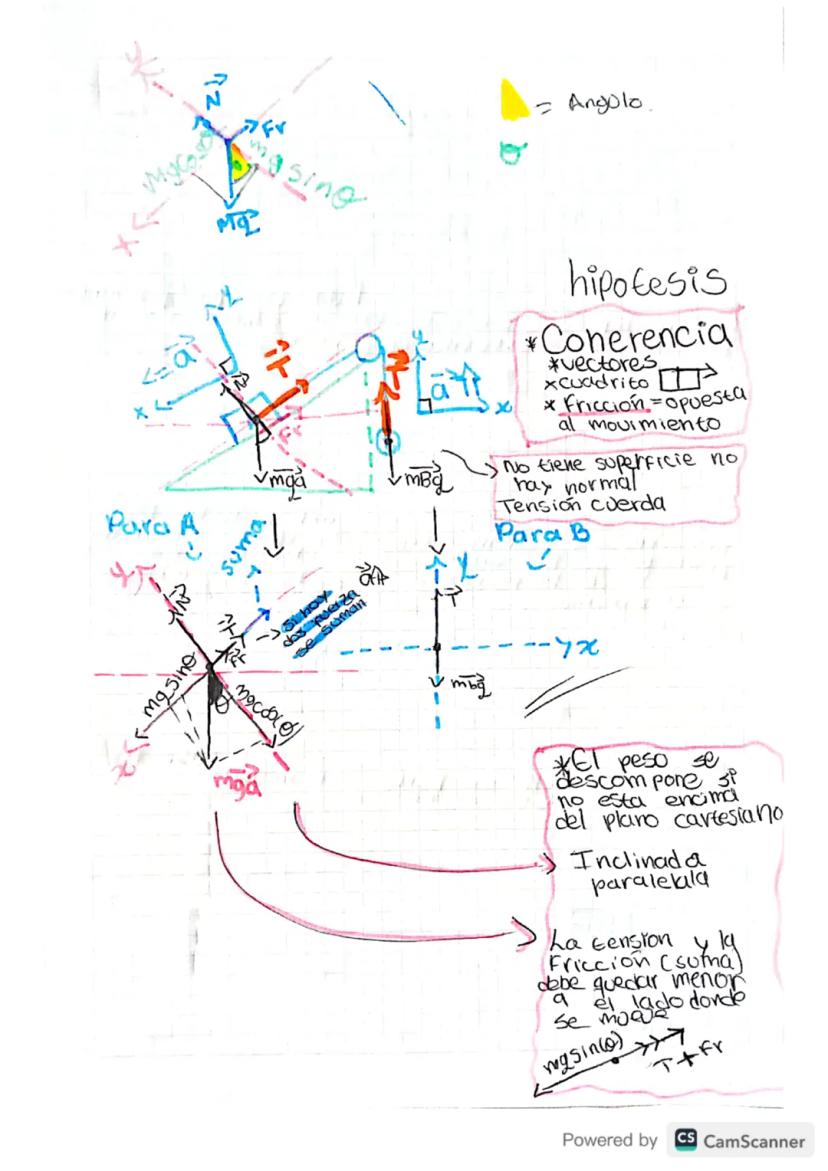 y
N
Fr
= Angulo.
θ
Mgcosθ
mgsinθ
x
mg
hipotesis
*Coherencia
*vectores
xcuadrito
* Fricción = opuesta
al movimiento
y
a
T
T
y
N
x
a
x
Fr
mga
mBg
No tiene superficie no
hay normal
Tensión cuerda
Para A
suma
Para B
y
N
T
Fr
si hay
dos fuerza
se suman
aA
y
T
x
mbg
mgsinθ
θ
mgcos(θ)
x
mga
*El peso se
descompone si
no esta encima
del plano cartesiano
Inclinada
paralelala
La tension y la
Fricción (suma)
debe quedar menor
a el lado donde
se mueve
mgsin(θ)
T + Fr
Powered by CS CamScanner